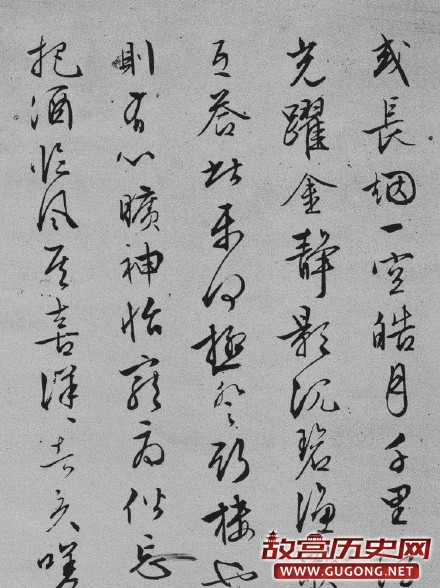 或長烟一空皓月千里
光躍金靜影沉碧漁
互答此樂何極登斯樓也
則有心曠神怡寵辱偕忘
把酒臨風其喜洋〻者矣嗟
故宫历史网
WWW.GUGONG.NET